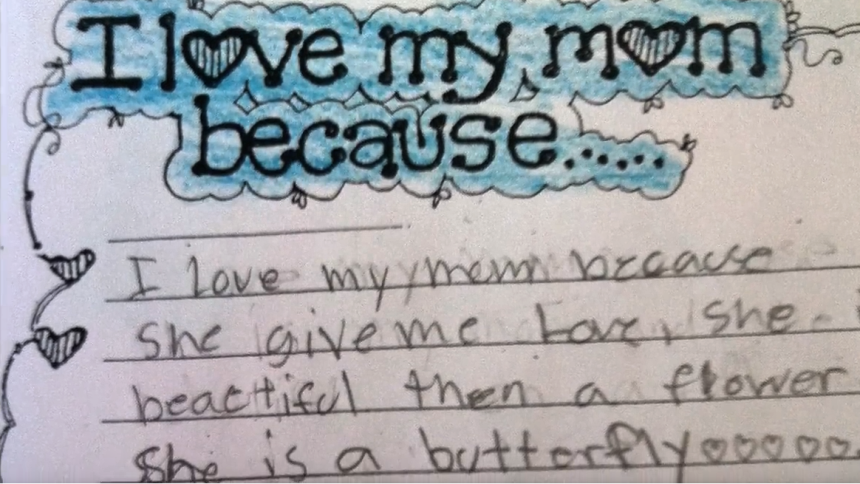 I love my mom
because.....
I love my mom because
she give me Love, she
beactiful then a flower
she is a butterfly